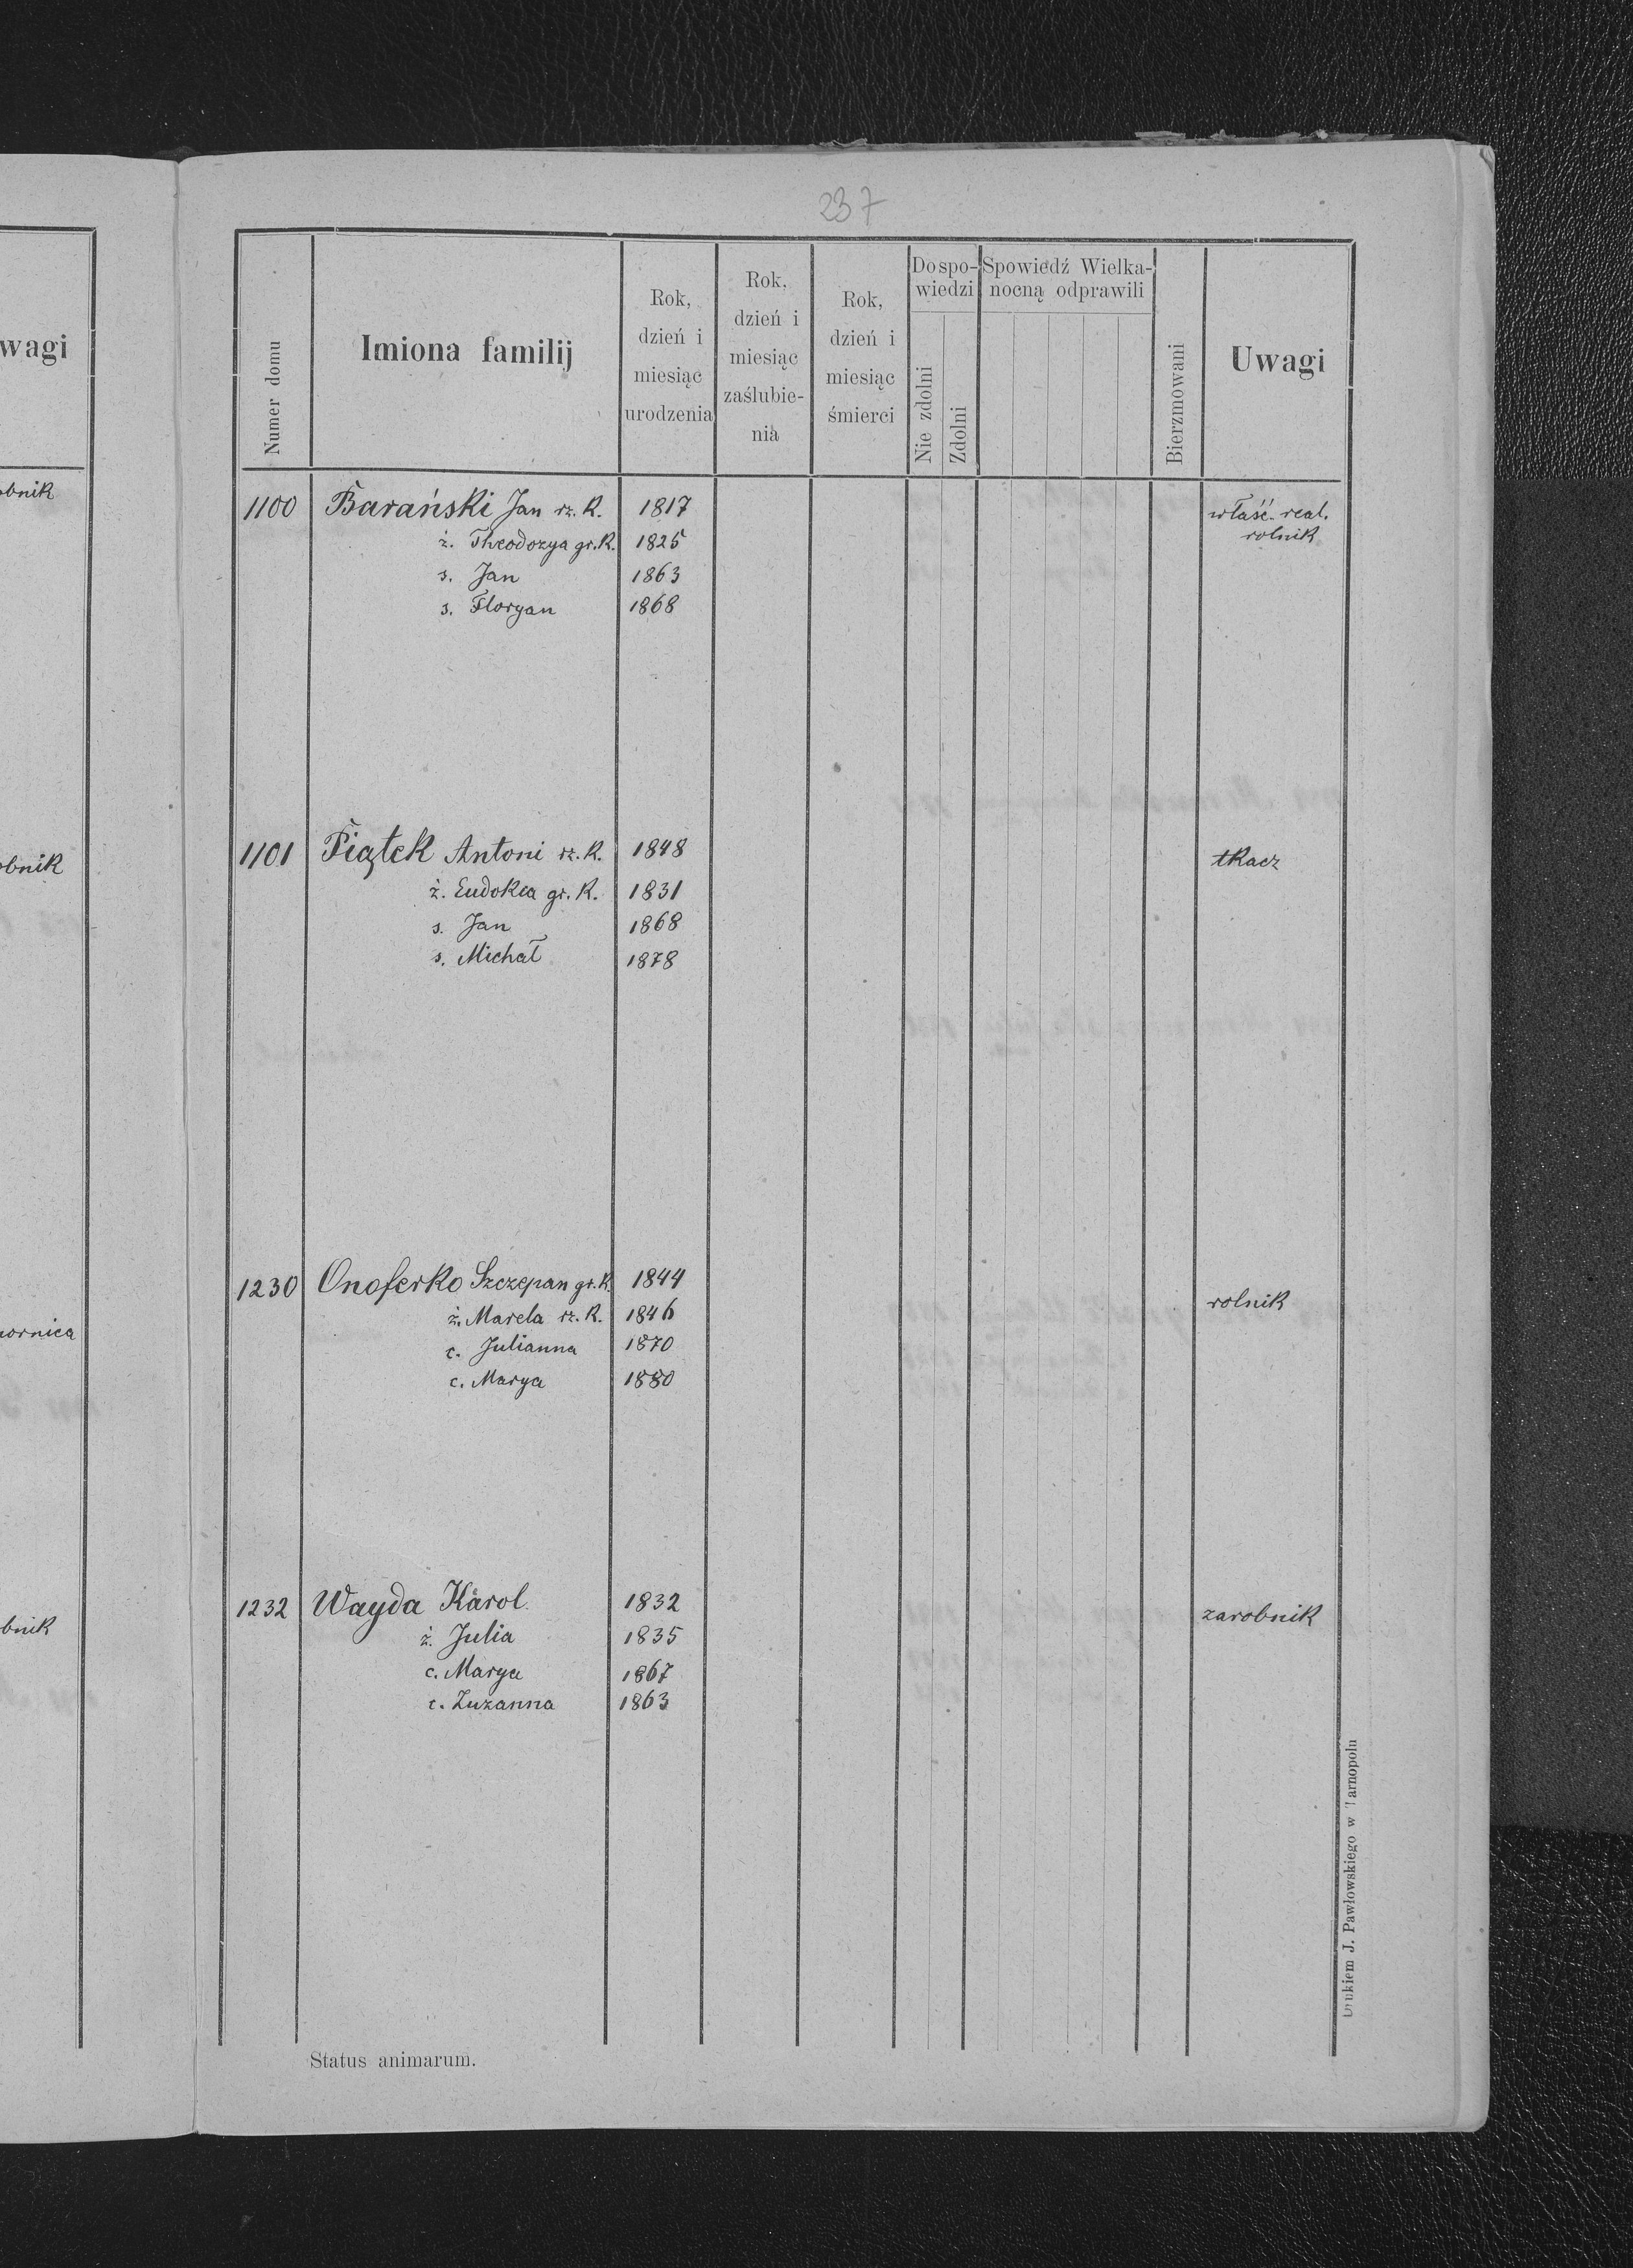 237
wagi
Numer domu
Imiona familij
Rok, dzień i miesiąc urodzenia
Rok, dzień i miesiąc zaślubie-nia
Rok, dzień i miesiąc śmierci
Do spo-wiedzi
Nie zdolni
Zdolni
Spowiedź Wielka-nocną odprawili
Bierzmowani
Uwagi
obnik
1100 Barański Jan rz. k. 1817 właść. real.
ż. Theodozya gr. k. 1825 rolnik
s. Jan 1863
s. Floryan 1868
obnik
1101 Piątek Antoni rz. k. 1848 tkacz
ż. Eudokia gr. k. 1831
s. Jan 1868
s. Michał 1878
1230 Onoferko Szczepan gr. k. 1844 rolnik
ż. Marela rz. k. 1846
c. Julianna 1870
c. Marya 1880
ornica
1232 Wayda Karol 1832 zarobnik
ż. Julia 1835
c. Marya 1867
c. Zuzanna 1863
bnik
Status animarum.
Drukiem J. Pawłowskiego w Tarnopolu